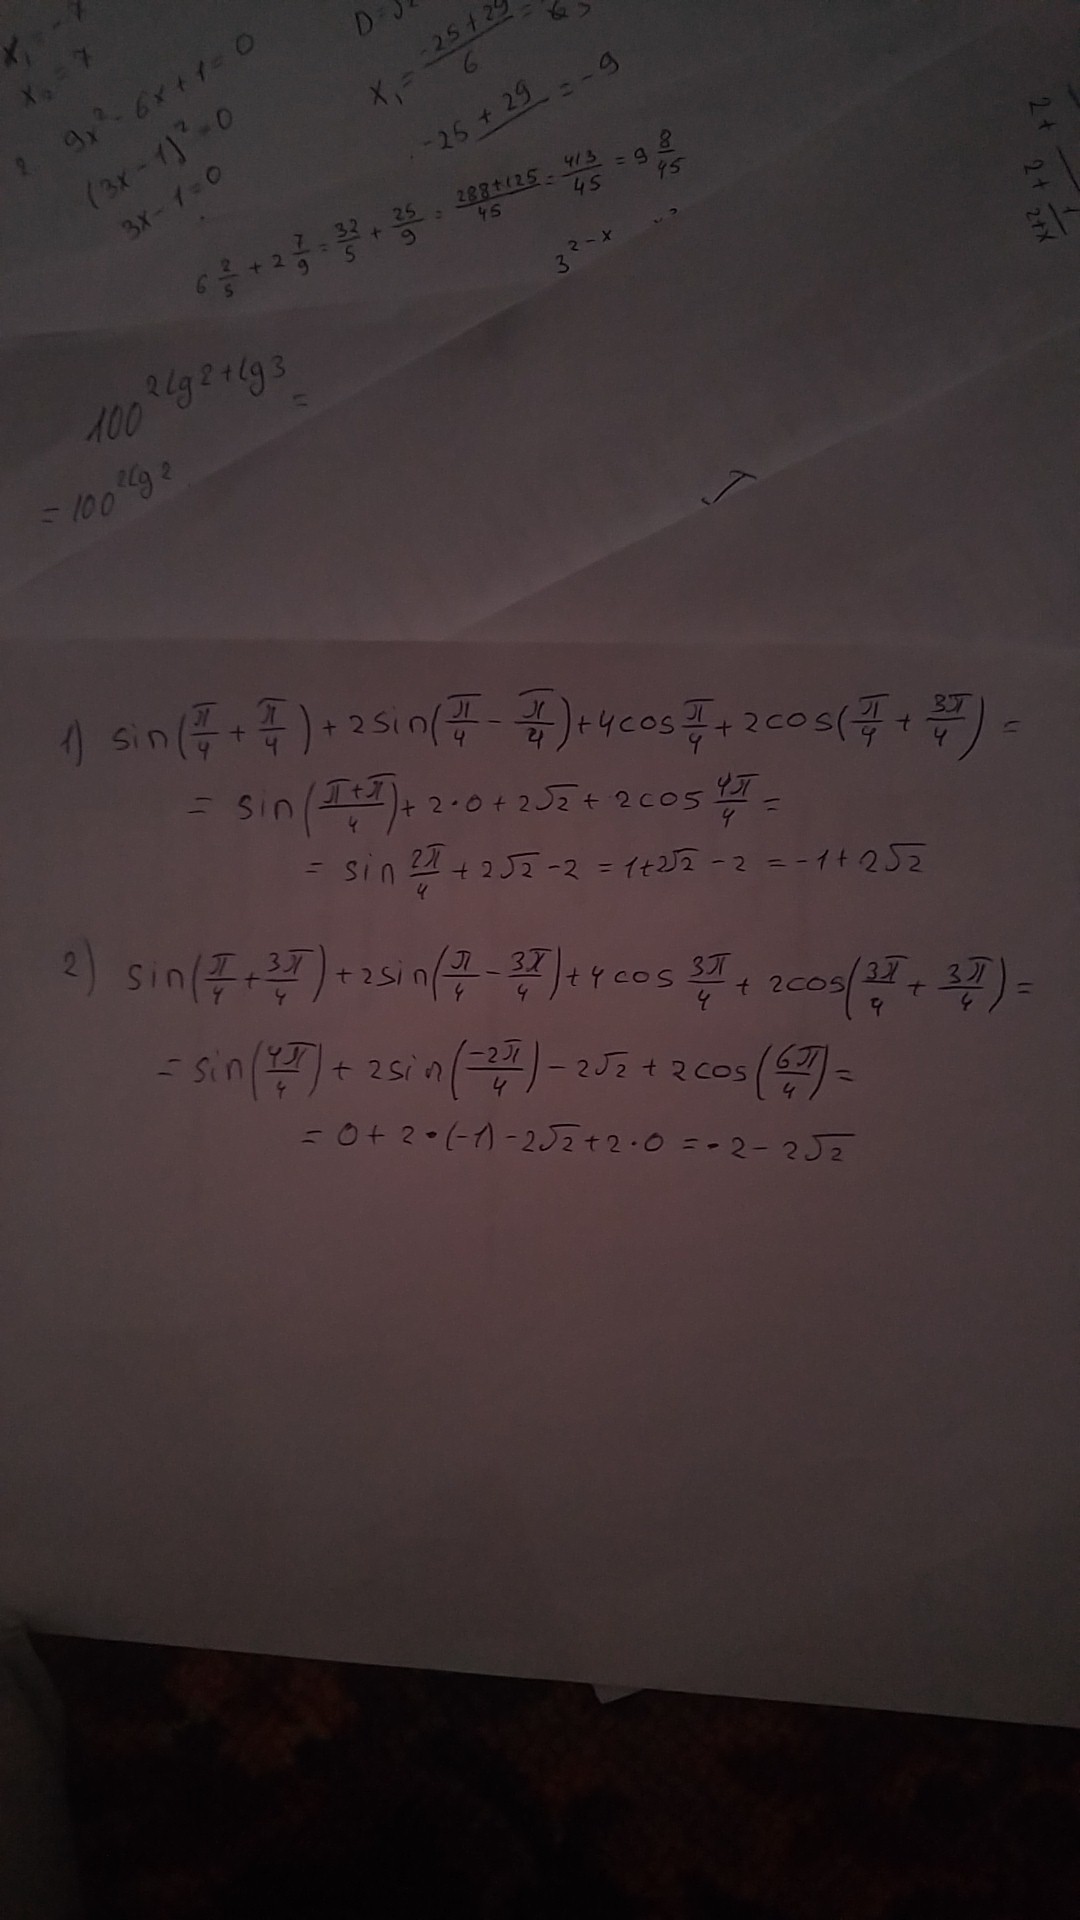 x₁ = -7
x₂ = 7
9x² - 6x + 1 = 0
(3x - 1)² = 0
3x - 1 = 0
D =
x₁ = (-25 + 29)/6 =
-25 + 29 = -9
6 2/5 + 2 7/9 = 32/5 + 25/9 = (288+125)/45 = 413/45 = 9 8/45
3^(2-x)
2 +
2 +
2+x
100^(2lg2+lg3) =
= 100^(2lg2)
1) sin(π/4 + π/4) + 2sin(π/4 - π/4) + 4cos π/4 + 2cos(π/4 + 3π/4) =
= sin((π+π)/4) + 2·0 + 2√2 + 2cos 4π/4 =
= sin 2π/4 + 2√2 - 2 = 1+2√2 - 2 = -1 + 2√2
2) sin(π/4 + 3π/4) + 2sin(π/4 - 3π/4) + 4cos 3π/4 + 2cos(3π/4 + 3π/4) =
= sin(4π/4) + 2sin(-2π/4) - 2√2 + 2cos(6π/4) =
= 0 + 2·(-1) - 2√2 + 2·0 = -2 - 2√2